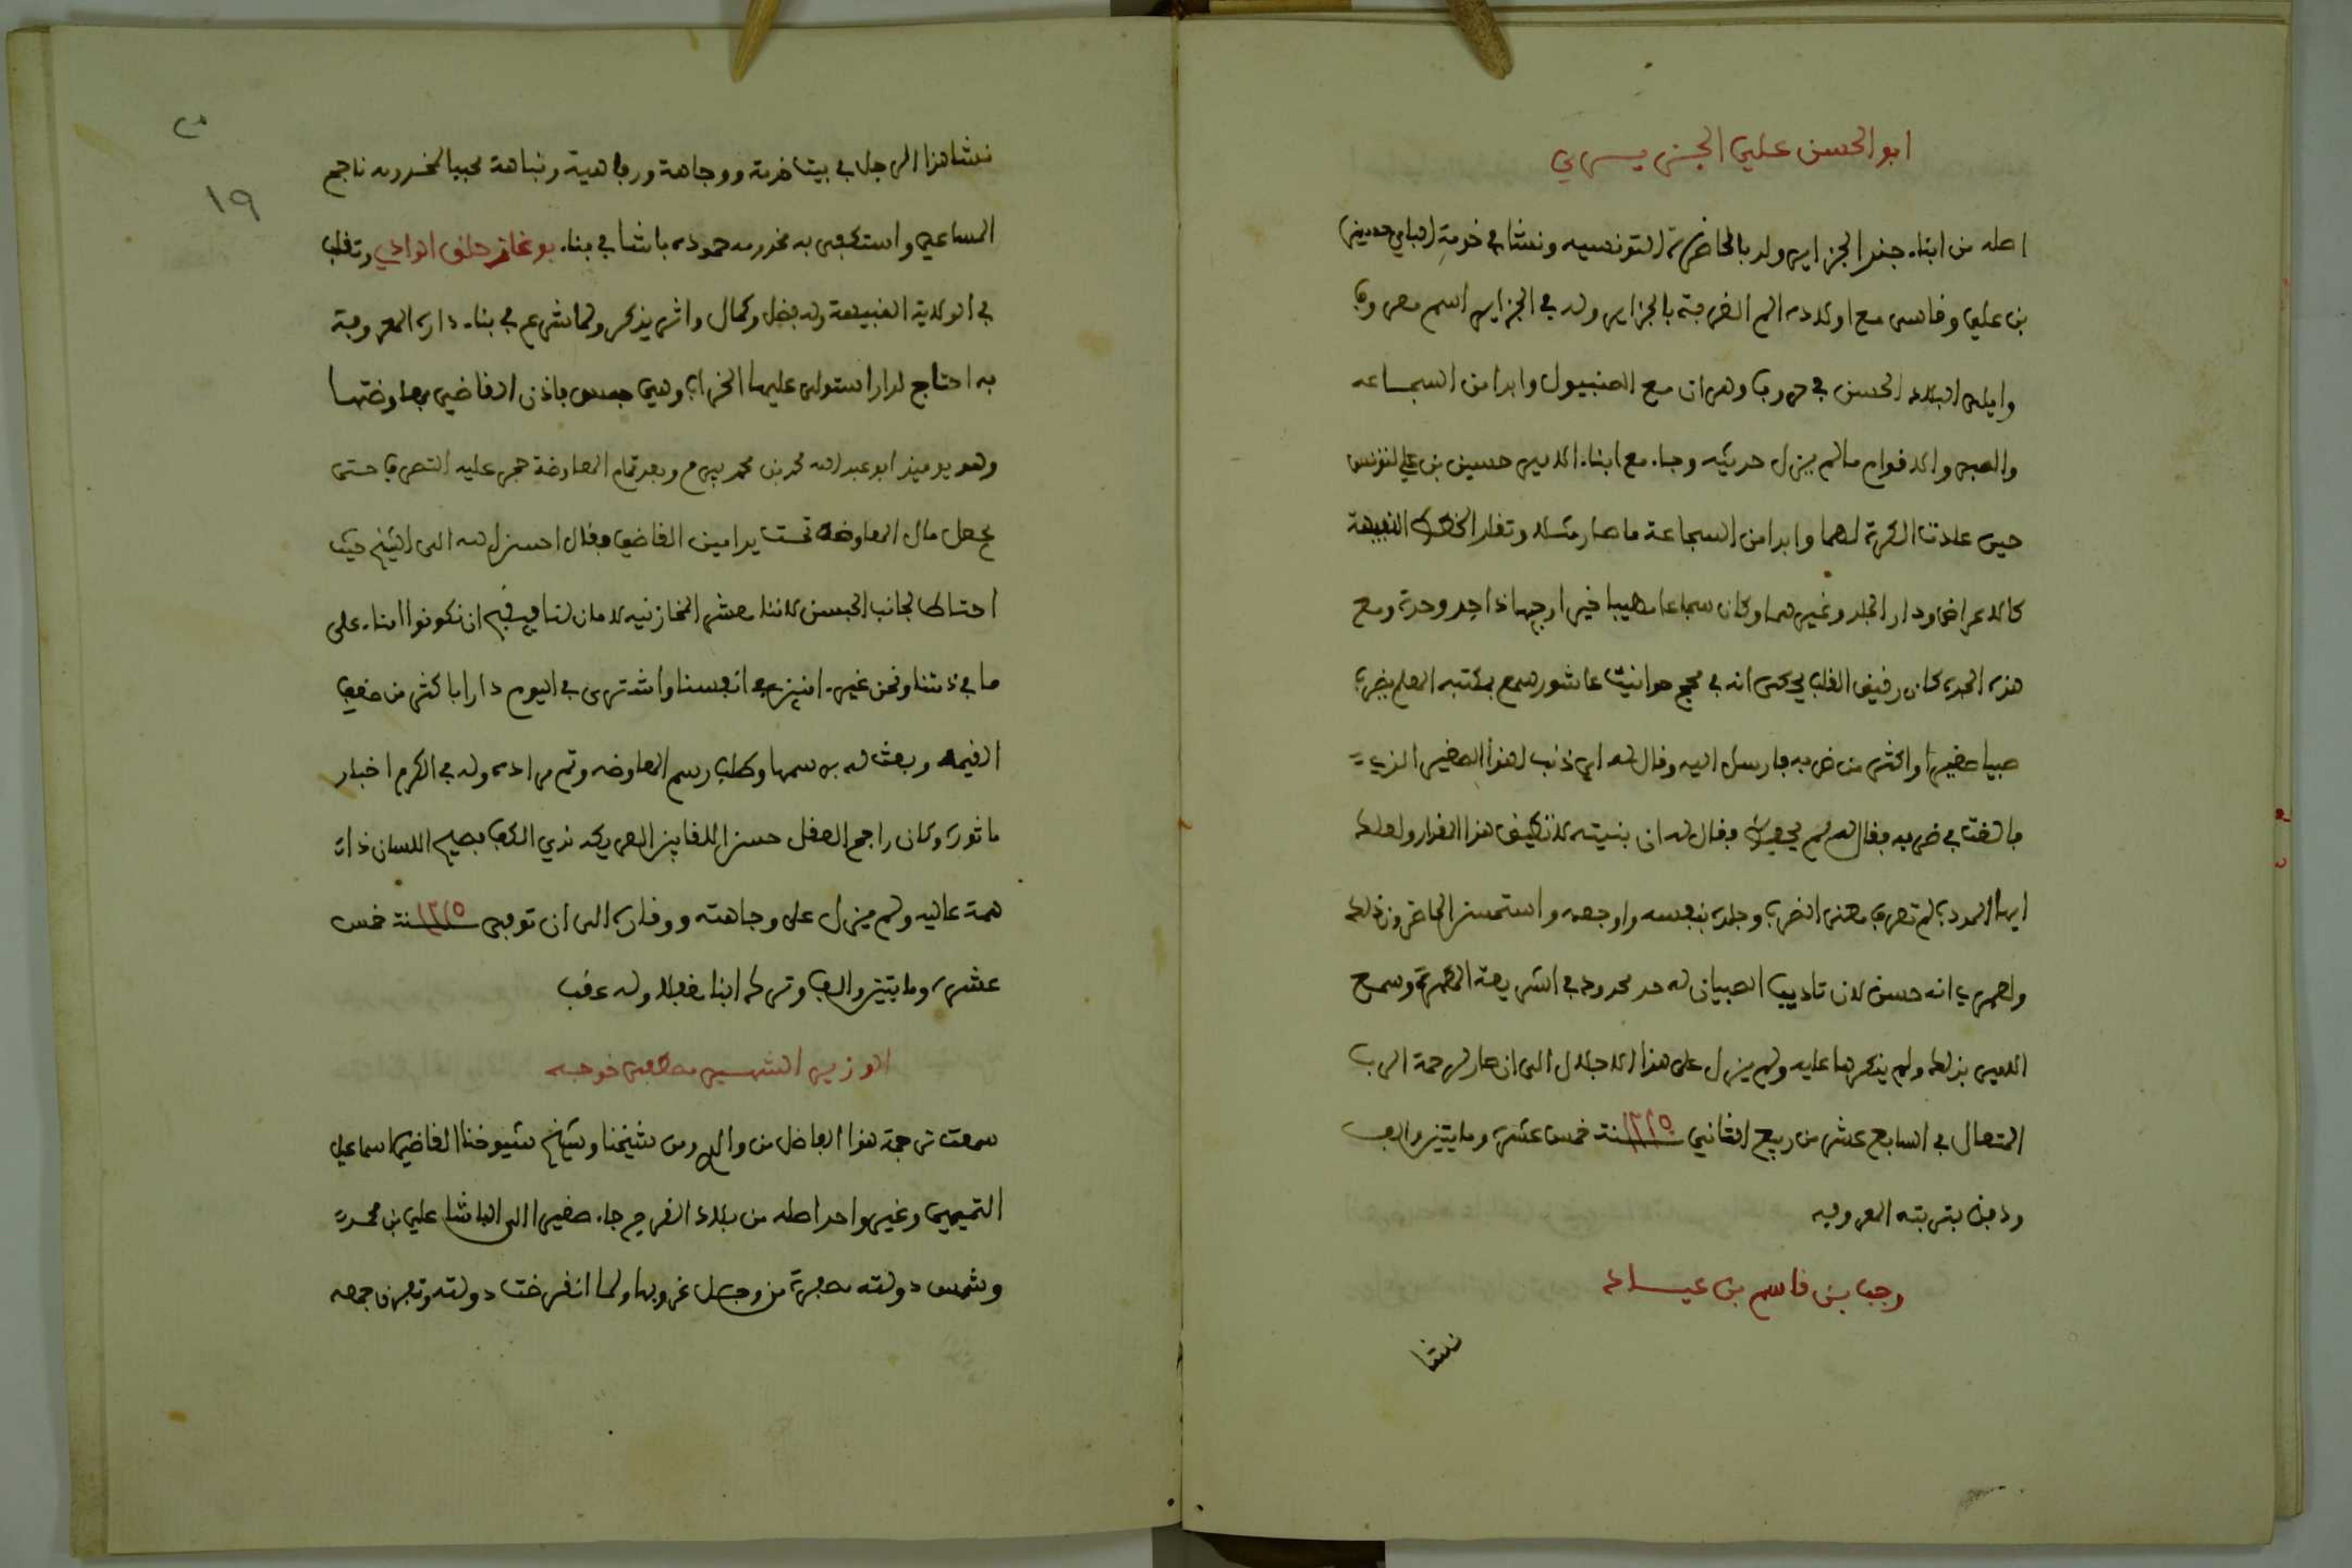 ابو الحسن علي الجزيري
اصله من ابناء جند الجزاير ولد بالحاضرة التونسيه ونشا في خدمة الباي حسين
بن علي وقاسى مع اولاده الم الغربة بالجزاير وله في الجزاير اسم معروف
وابلى البلاء الحسن في حروب وهران مع الصنبيول وابدا من الشجاعه
والصبر والاقدام مالم يزل حديثه وجاء مع ابناء الامير حسين بن علي لتونس
حين عادت الكرة لهما وابدا من الشجاعة ما صار مثلا وتقلد الخطط النبيهة
كالاعراض ودار الجلد وغيرهما وكان شجاعا مهيبا خيرا وجيها ذا جد وحدة ومع
هذه الحدة كان رفيق القلب يحكى انه في حجج حوانيت عاشور سمع بمكتبه المعلم يضرب
صبيا صغيرا واكثر من ضربه فارسل اليه وقال له اي ذنب لهذا الصغير الذي
بالغت في ضربه فقال له لم يحفظ فقال له ان بنيته لا تطيق هذا القدر ولعلك
ايها المودب لم تعرف معنى الضرب وجلده بنفسه واوجعه واستحسن الحاضرون ذلك
ولعمري انه حسن لان تاديب الصبيان له حد محدود في الشريعة المطهرة وسمع
الامير بذلك ولم ينكرها عليه ولم يزل على هذا الاجلال الى ان صار لرحمة الرب
المتعال في السابع عشر من ربيع الثاني سنة ١٢١٥ خمس عشرة ومايتين والف
ودفن بتربته المعروفه
رجب بن قاسم بن عياد
نشا
١٩
نشا هذا الرجل في بيت خدمة ووجاهة ورفاهية ونباهة محببا لمخدومه ناجح
المساعي واستكفى به مخدومه حموده باشا في بناء بوغاز حلق الوادي وتقلب
في الولاية النبيهة وله فضل وكمال واثر يذكر ولما شرع في بناء داره المعروفة
به احتاج لدار استولى عليها الخراب وهي حبس باذن القاضي بمعاوضتها
وهو يوميذ ابو عبد الله محمد بن محمد بيرم وبعد تمام المعاوضة حجر عليه التصرف حتى
يجعل مال المعاوضة تحت يد امين القاضي فقال احسن الله الى الشيخ حيث
احتاط لجانب الحبس لاننا معشر المخازنيه لا مان لنا فيقبح ان نكونوا امناء على
ما في ذمتنا ونحن غير امنين في انفسنا واشترى في اليوم دارا باكثر من ضعف
القيمه وبعث له برسمها وطلب رسم المعاوضه وتم مراده وله في الكرم اخبار
ماثورة وكان راجح العقل حسن اللقا عذب الفكاهة ندي الكف فصيح اللسان ذا
همة عاليه ولم يزل على وجاهته ووقاره الى ان توفي سنة ١٢١٥ خمس
عشرة ومايتين والف وترك ابنا مغفلا وله عقب
الوزير الشهير مصطفى خوجه
سمعت ترجمة هذا الفاضل من والدي ومن شيخنا وشيخ شيوخنا القاضي اسماعيل
التميمي وغير واحد اصله من بلاد القرج جاء صغيرا الى الباشا علي بن محمد
وشمس دولته مصفرة من وجل غروبها ولما انقرضت دولته وتفرق جمعه